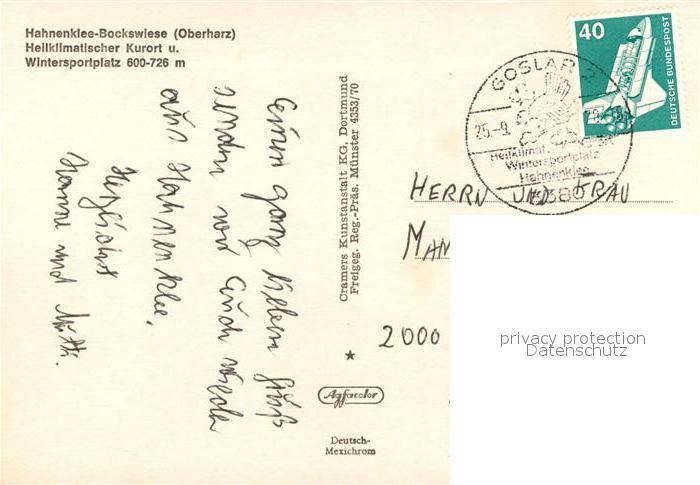 Hahnenklee-Bockswiese (Oberharz)
Heilklimatischer Kurort u.
Wintersportplatz 600-726 m
Einen ganz lieben Gruß
senden wir Euch
aus Hahnenklee.
Herzlichst
Hanne und
Cramers Kunstanstalt KG, Dortmund
Freigeg. Reg.-Präs. Münster 4353/70
Agfacolor
Deutsch-
Mexichrom
40
DEUTSCHE BUNDESPOST
GOSLAR
25.-9.
Heilklimat.
Wintersportplatz
Hahnenklee
HERRN UND FRAU
MAN
2000
privacy protection
Datenschutz